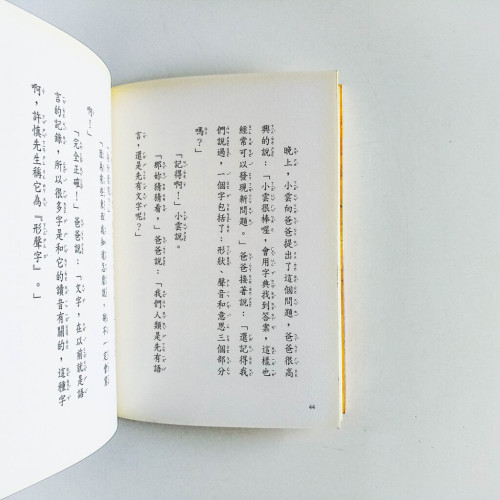 晚上，小雲向爸爸提出了這個問題，爸爸很高
興的說：「小雲很棒喔，會用字典找到答案，這樣也
經常可以發現新問題。」爸爸接著說：「還記得我
們說過，一個字包括了：形狀、聲音和意思三個部分
嗎？」
「記得啊！」小雲說。
「那妳猜猜看，」爸爸說：「我們人類是先有語
言，還是先有文字呢？」
44
啊！」
「完全正確！」爸爸說：「文字，在以前就是語
言的記錄，所以很多字是和它的讀音有關的，這種字
啊，許慎先生稱它為『形聲字』。」